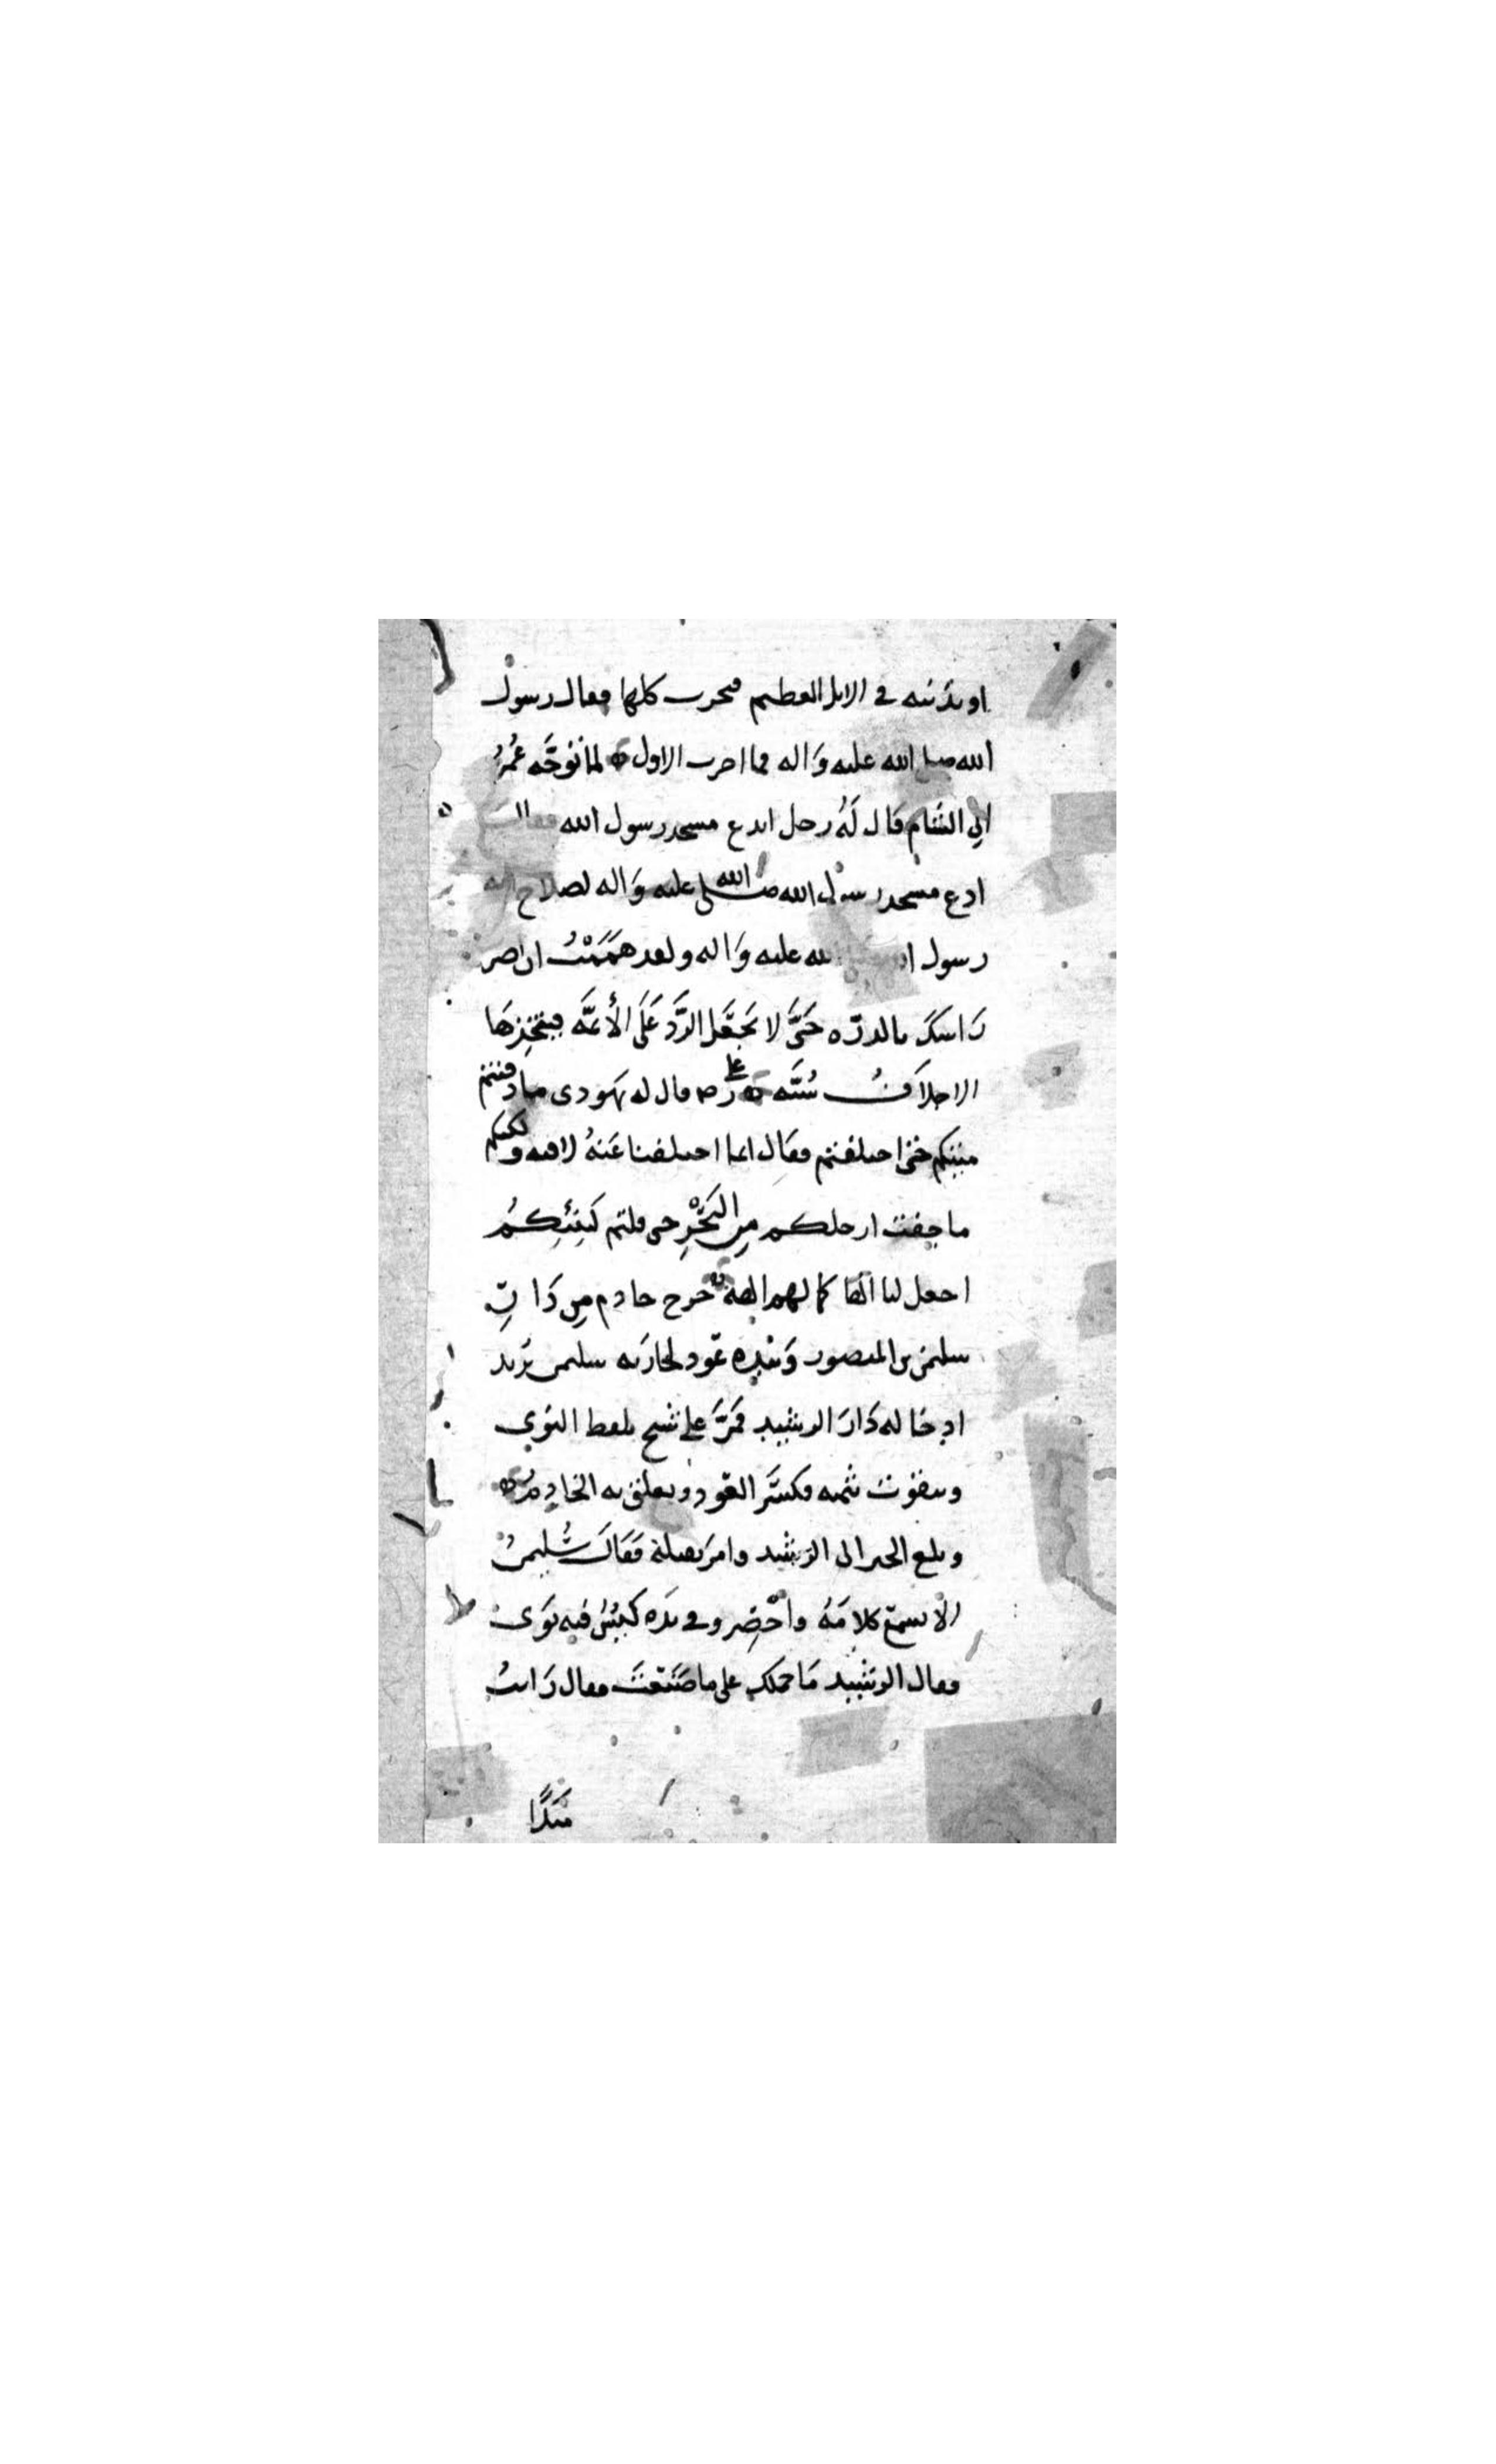 او بدنته في الابل العظيم فتجرب كلها فقال رسول
الله صلى الله عليه وَاله فما اجرب الاول لما توجَّه عُمَرُ
الى الشام قال لَهُ رجل اتدع مسجد رسول الله فقال
ادع مسجد رسول الله صلى الله عليه وَاله لصلاح امة
رسول الله عليه وَاله ولقد هَمَمْتُ ان اضرب
رَاسكَ بالدرّه حَتَّى لا تجعَل الرَّد عَلَى الأئمَّه فيتخِذهَا
الاجلافُ سُنَّه علي رض قال له يهودى ما دفنتم
نبيكم حتى اختلفتم فقال انما اختلفنا عَنهُ لا فيه ولكنكم
ما جفت ارجلكم مِن البَحْرِ حتى قلتم لنبيِّكُم
اجعل لنا الها كما لهم الهة خرج خادم مِن دَارِ
سليمن بن المنصور وَبيده عود لجاريه سليمن يريد
ادخاله دَارَ الرشيد فمَرَّ على شيخ يلقط النوى
ويتقوت ثمنه فكسَّر العود وتعلق به الخادم
وبلغ الخبر الى الرشيد وامر بقتله فقَال سُليمنُ
الا تسمع كلامَهُ واُحْضِر وفي يده كيسٌ فيه نوى
فقال الرشيد مَا حملك على ما صَنَعتَ فقال رَايتُ
منكرًا